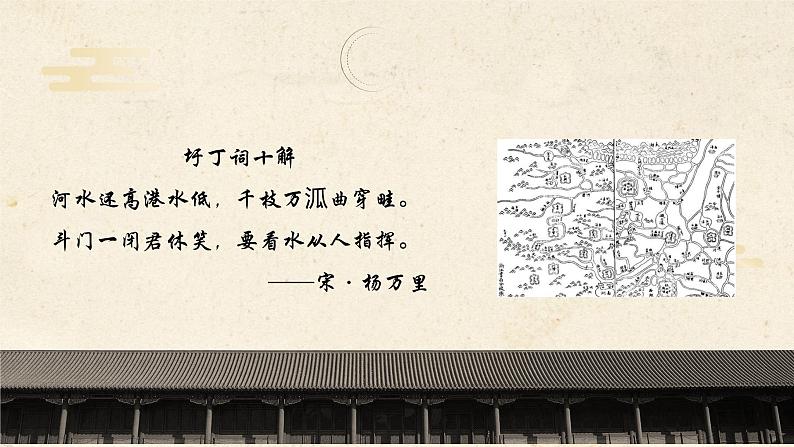 圩丁词十解
河水还高港水低，千枝万派曲穿畦。
斗门一闭君休笑，要看水从人指挥。
——宋·杨万里